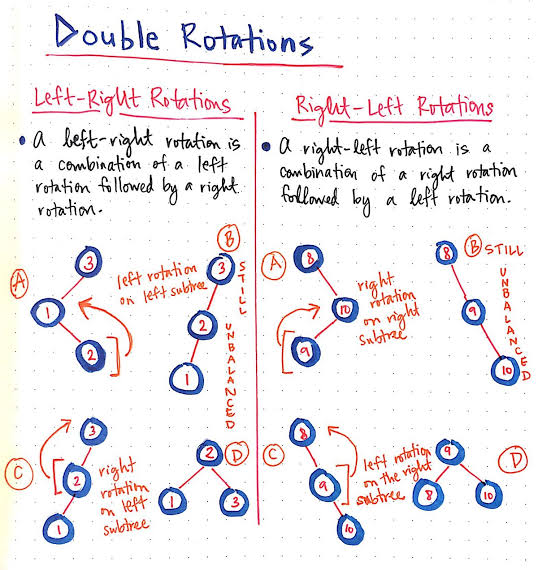 Double Rotations
Left-Right Rotations
• A left-right rotation is
a combination of a left
rotation followed by a right
rotation.
A
3
1
2
left rotation
on left subtree
B
3
2
1
STILL UNBALANCED
C
3
2
1
right
rotation
on left
subtree
D
2
1
3
Right-Left Rotations
• A right-left rotation is a
combination of a right rotation
followed by a left rotation.
A
8
10
9
right
rotation
on right
subtree
B STILL
UNBALANCED
8
9
10
C
8
9
10
left rotation
on the right
subtree
D
9
8
10